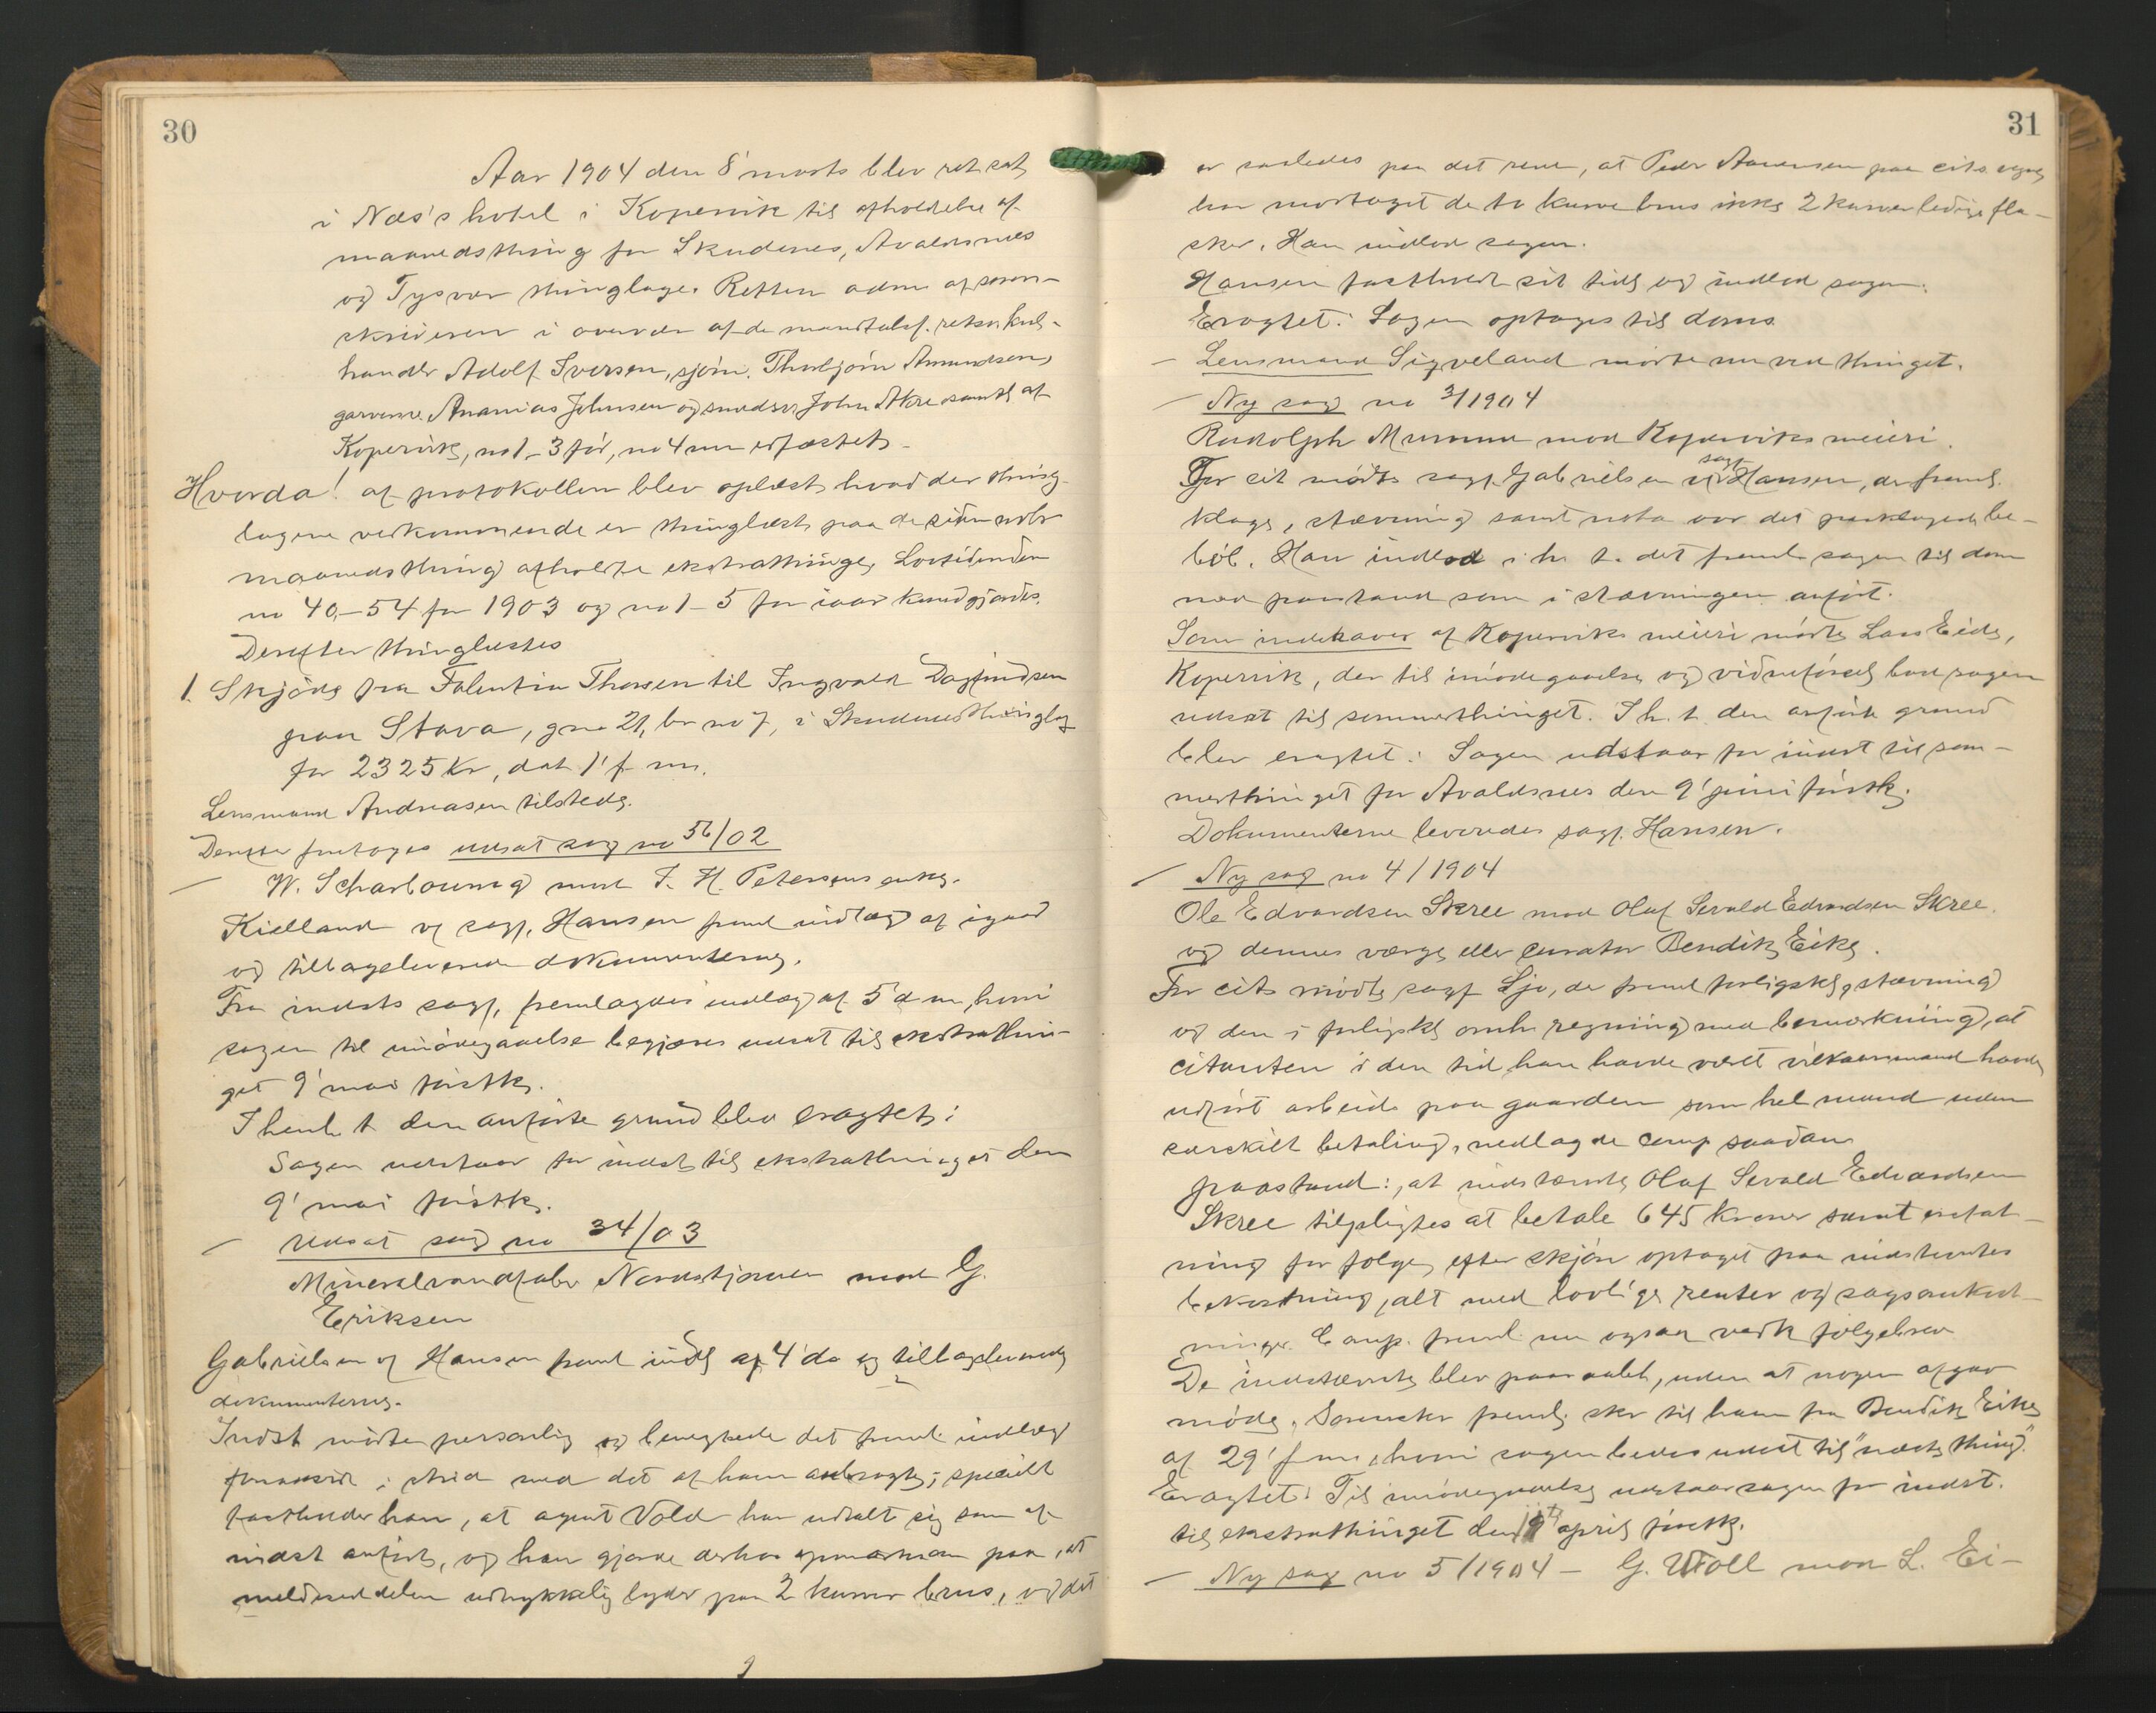 30
Aar 1904 den 8' marts blev ret sat
i Næs's hotel i Kopervik til afholdelse af
maanedsthing for Skudenes, Avaldsnes
og Tysvær thinglage. Retten adm af soren-
skriveren i overvær af de mandtalsf. retsv. kul-
handler Adolf Iversen, sjøm. Thorbjørn Amundsen,
garver Ananias Johnsen og smedsv. John Akre samtl af
Kopervik, no 1-3 før, no 4 nu edfæstet.
Hvorda! af protokollen blev oplæst hvad der thing-
lagene vedkommende er thinglæst paa de siden novbr
maanedsthing afholdte ekstrathinge, Lovtidenden
no 40-54 for 1903 og no 1-5 for iaar kundgjordes.
Derefter thinglæstes
1. Skjøde fra Falentin Thorsen til Ingvald Dagfindsen
paa Stava, gno 21, br no 7, i Skudenes thinglag
for 2325 kr, dat 1' f. m.
Lensmand Andreasen tilstede.
Derefter foretoges udsat sag no 56/02
W. Scharbouing mod F. H. Petersens enke.
Kielland v sagf. Hansen freml indlæg af igaar
og tilbageleverede dokumenterne.
Fra indsts sagf. fremlagdes indlæg af 5 d m, hvori
sagen til imødegaaelse begjæres udsat til ekstrathin-
get 9' mai førstk.
I henh t den anførte grund blev eragtet:
Sagen udstaar for indst til ekstrathinget den
9' mai førstk.
Udsat sag no 34/03
Mineralvandfabr Nordstjernen mod G.
Eriksen
Gabrielsen v Hansen freml indl af 4' ds og tilbageleverede
dokumenterne.
Indst mødte personlig og benegtede det freml indlæg
i strid med det af ham anbragte; specielt
fastholder han, at agent Vold har udtalt sig som af
indst anført, og han gjorde derhos opmærksom paa, at
meldeseddelen udtrykkelig lyder paa 2 kurver brus, og det
31
er saaledes paa det rene, at Peder Aanensen paa cits vegne
har modtaget de to kurve brus ikke 2 kurver ledige fla-
sker. Han indlod sagen.
Hansen fastholdt sit tidl og indlod sagen.
Eragtet: Sagen optages til doms
Lensmand Sigveland mødte nu ved thinget.
Ny sag no 3/1904
Rudolph Mumm mod Koperviks meieri.
For cit mødte sagf. Gabrielsen v sagf Hansen, der freml.
klage, stævning samt nota over det paaklagede be-
løb. Han indlod i h. t. det freml sagen til dom
med paastand som i stævningen anført.
Som indehaver af Koperviks meieri mødte Lars Eide,
Kopervik, der til imødegaaelse og vidneførsel bad sagen
udsat til sommerthinget. I h. t. den anførte grund
blev eragtet: Sagen udstaar for indst til som-
merthinget for Avaldsnes den 9' juni førstk.
Dokumenterne leveredes sagf. Hansen.
Ny sag no 4/1904
Ole Edvardsen Skree mod Olaf Sevald Edvardsen Skree
og dennes værge eller curator Bendik Eike.
For cits mødte sagf Ljo, der freml forligskl, stævning
og den i forligskl omh regning med bemærkning, at
citanten i den tid han havde været vilkaarsmand havde
udført arbeide paa gaarden som hel mand uden
særskilt betaling, nedlagde comp saadan
paastand:, at indstævnte Olaf Sevald Edvardsen
Skree tilpligtes at betale 645 kroner samt erstat-
ning for følge, efter skjøn optaget paa indstevntes
bekostning, alt med lovlige renter og sagsomkost-
ninger. Comp. freml. nu ogsaa vedk følgebrev
De indstævnte blev paaraabt, uden at nogen afgav
møde. Sorenskr freml. skr til ham fra Bendik Eike
af 29' f m, hvori sagen bedes udsat til "næste thing".
Eragtet: Til imødegaaelse udstaar sagen for indst.
til ekstrathinget den april førstk.
Ny sag no 5/1904 - G. Woll mod L. Ei-